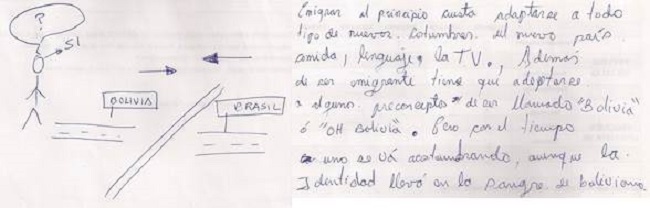 ?
SI
BOLIVIA
BRASIL
Emigrar al principio cuesta adaptarse a todo
tipo de nuevos. Costumbres. el nuevo país.
comida, lenguaje, la T.V., Además
de ser emigrante tiene que adaptarse.
a alguno. preconceptos de ser llamado "Bolivia"
ó "OH Bolivia". Pero con el tiempo
uno se vá acostumbrando, aunque la.
Identidad llevó en la sangre. de boliviano